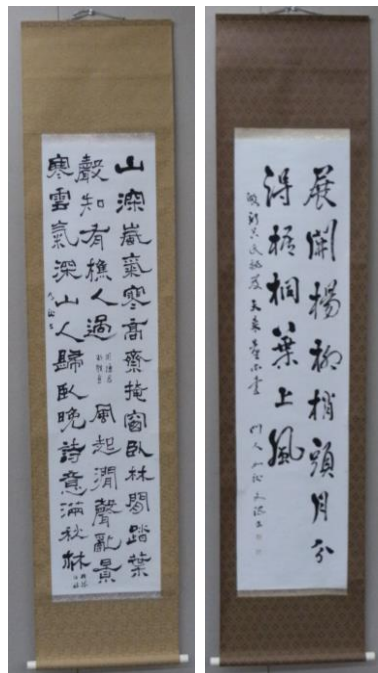 山深嵐氣寒高齋掩窗臥林閒踏葉
聲知有樵人過 風起澗聲亂景
寒雲氣深山人歸臥晚詩意滿秋林
展開楊柳梢頭月分
得梧桐葉上風